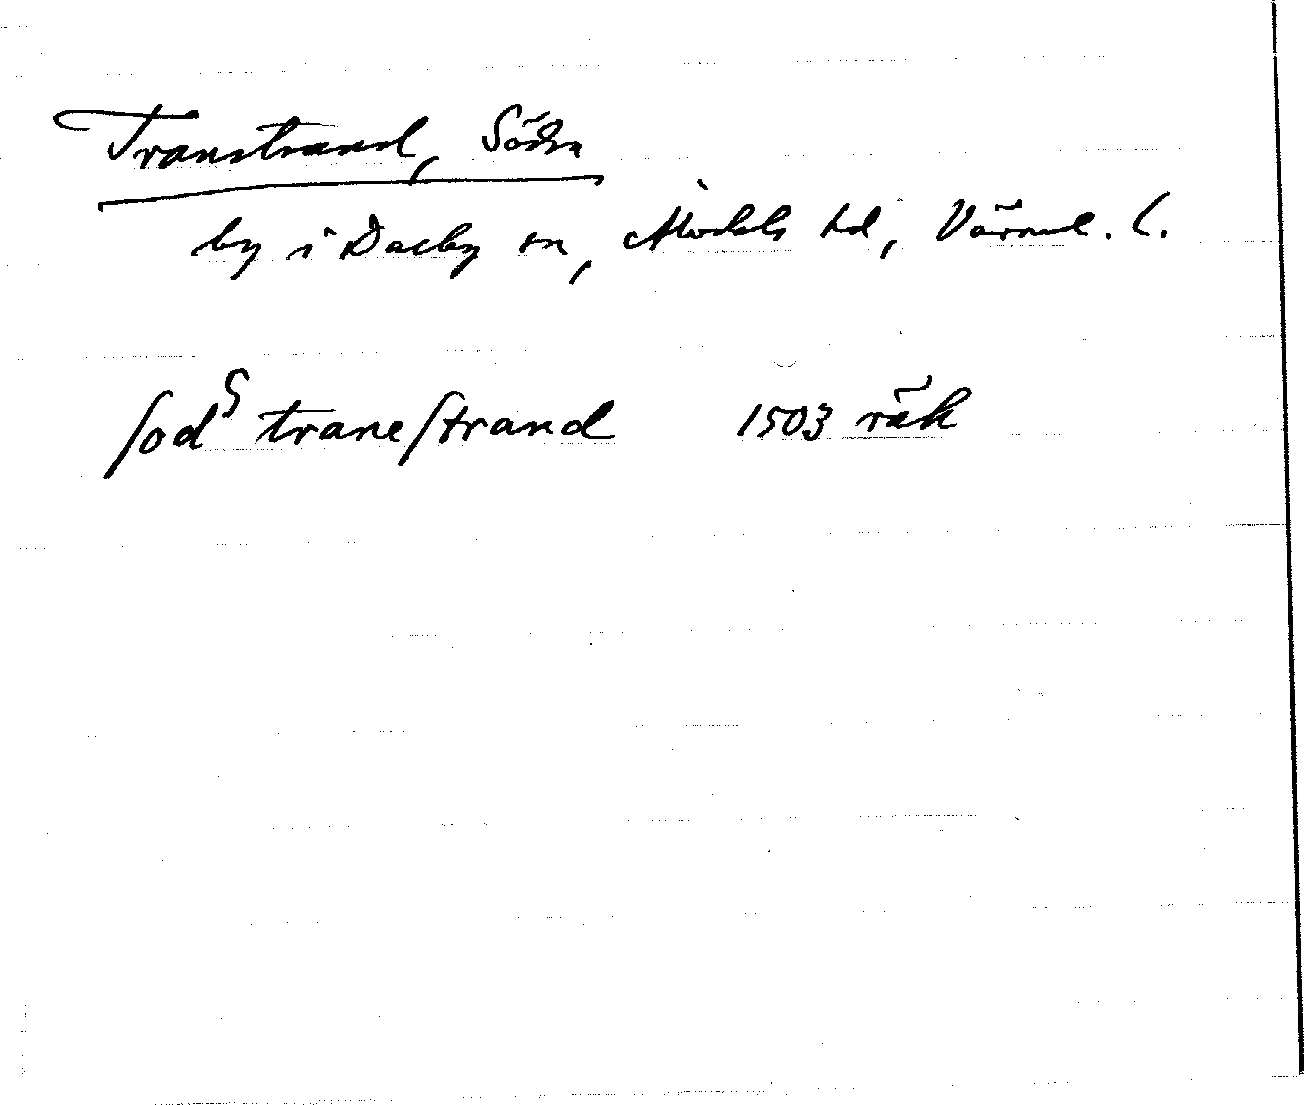 Transtrand, Södra
by i Dalby sn, Älvdals hd, Värml. l.
ſodˢ traneſtrand 1503 räk